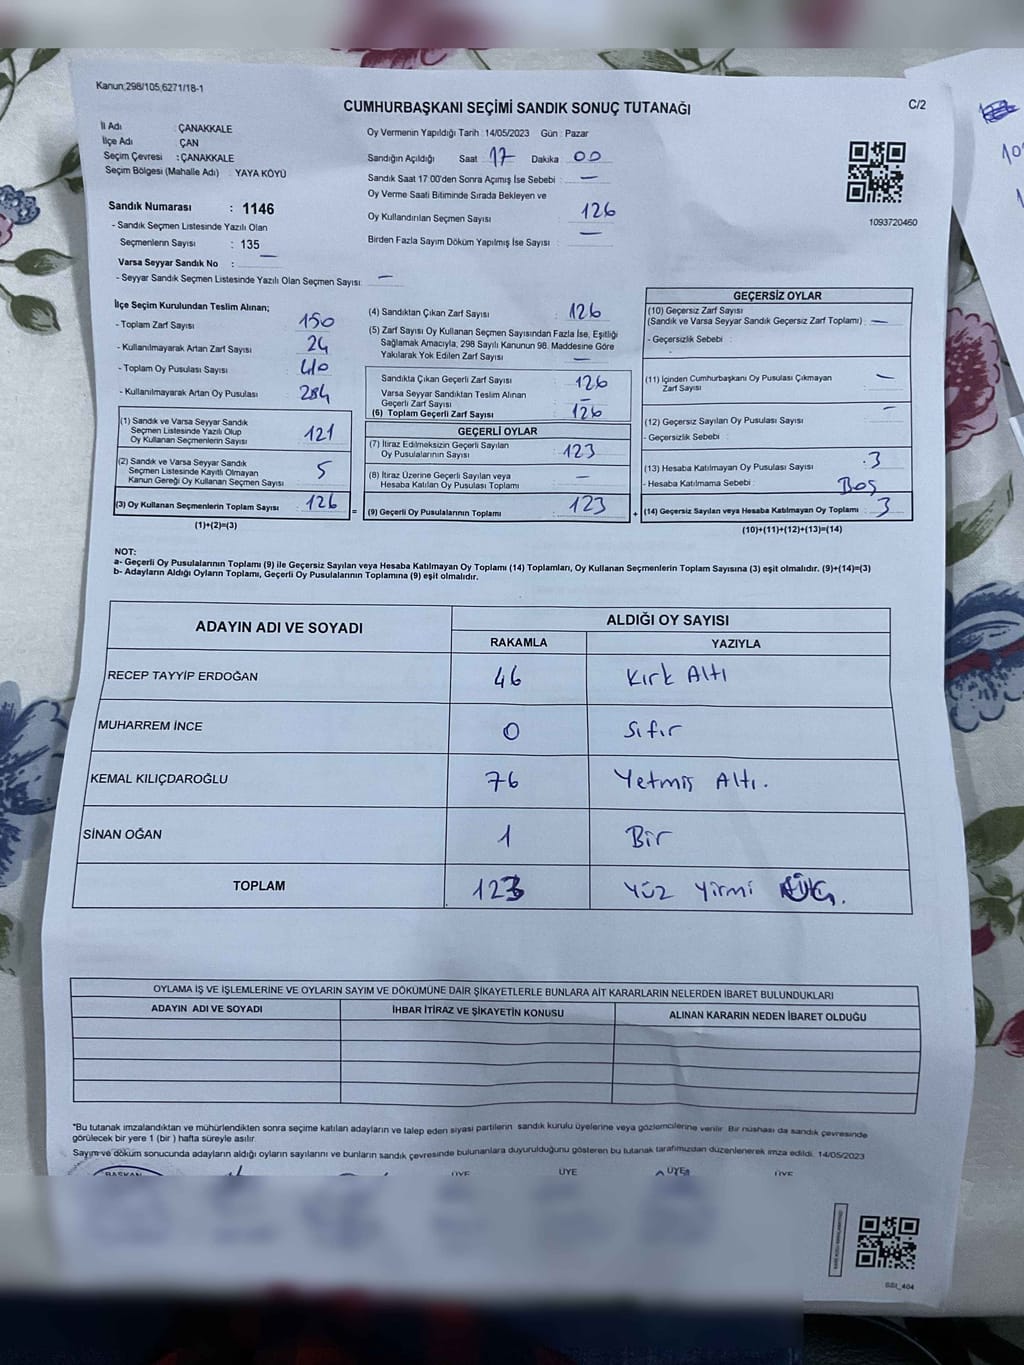 Kanun;298/105,6271/18-1
C/2
CUMHURBAŞKANI SEÇİMİ SANDIK SONUÇ TUTANAĞI
İl Adı : ÇANAKKALE
İlçe Adı : ÇAN
Seçim Çevresi : ÇANAKKALE
Seçim Bölgesi (Mahalle Adı) : YAYA KÖYÜ
Sandık Numarası : 1146
- Sandık Seçmen Listesinde Yazılı Olan
Seçmenlerin Sayısı : 135
Varsa Seyyar Sandık No : —
- Seyyar Sandık Seçmen Listesinde Yazılı Olan Seçmen Sayısı: —
Oy Vermenin Yapıldığı Tarih : 14/05/2023 Gün : Pazar
Sandığın Açıldığı Saat 17 Dakika 00
Sandık Saat 17:00'den Sonra Açımış İse Sebebi : —
Oy Verme Saati Bitiminde Sırada Bekleyen ve
Oy Kullandırılan Seçmen Sayısı 126
Birden Fazla Sayım Döküm Yapılmış İse Sayısı : —
1093720460
İlçe Seçim Kurulundan Teslim Alınan;
- Toplam Zarf Sayısı : 150
- Kullanılmayarak Artan Zarf Sayısı : 24
- Toplam Oy Pusulası Sayısı : 410
- Kullanılmayarak Artan Oy Pusulası : 284
(1) Sandık ve Varsa Seyyar Sandık
Seçmen Listesinde Yazılı Olup
Oy Kullanan Seçmenlerin Sayısı 121
(2) Sandık ve Varsa Seyyar Sandık
Seçmen Listesinde Kayıtlı Olmayan
Kanun Gereği Oy Kullanan Seçmen Sayısı 5
(3) Oy Kullanan Seçmenlerin Toplam Sayısı 126 =
(1)+(2)=(3)
(4) Sandıktan Çıkan Zarf Sayısı : 126
(5) Zarf Sayısı Oy Kullanan Seçmen Sayısından Fazla İse, Eşitliği
Sağlamak Amacıyla, 298 Sayılı Kanunun 98. Maddesine Göre
Yakılarak Yok Edilen Zarf Sayısı : —
Sandıkta Çıkan Geçerli Zarf Sayısı : 126
Varsa Seyyar Sandıktan Teslim Alınan
Geçerli Zarf Sayısı : —
(6) Toplam Geçerli Zarf Sayısı : 126
GEÇERLİ OYLAR
(7) İtiraz Edilmeksizin Geçerli Sayılan
Oy Pusulalarının Sayısı : 123
(8) İtiraz Üzerine Geçerli Sayılan veya
Hesaba Katılan Oy Pusulası Toplamı : —
(9) Geçerli Oy Pusulalarının Toplamı : 123 +
GEÇERSİZ OYLAR
(10) Geçersiz Zarf Sayısı
(Sandık ve Varsa Seyyar Sandık Geçersiz Zarf Toplamı) : —
- Geçersizlik Sebebi :
(11) İçinden Cumhurbaşkanı Oy Pusulası Çıkmayan
Zarf Sayısı : —
(12) Geçersiz Sayılan Oy Pusulası Sayısı : —
- Geçersizlik Sebebi :
(13) Hesaba Katılmayan Oy Pusulası Sayısı : 3
- Hesaba Katılmama Sebebi : Boş
(14) Geçersiz Sayılan veya Hesaba Katılmayan Oy Toplamı : 3
(10)+(11)+(12)+(13)=(14)
NOT:
a- Geçerli Oy Pusulalarının Toplamı (9) ile Geçersiz Sayılan veya Hesaba Katılmayan Oy Toplamı (14) Toplamları, Oy Kullanan Seçmenlerin Toplam Sayısına (3) eşit olmalıdır. (9)+(14)=(3)
b- Adayların Aldığı Oyların Toplamı, Geçerli Oy Pusulalarının Toplamına (9) eşit olmalıdır.
ADAYIN ADI VE SOYADI
ALDIĞI OY SAYISI
RAKAMLA YAZIYLA
RECEP TAYYİP ERDOĞAN 46 Kırk Altı
MUHARREM İNCE 0 Sıfır
KEMAL KILIÇDAROĞLU 76 Yetmiş Altı.
SİNAN OĞAN 1 Bir
TOPLAM 123 Yüz Yirmi ÜÇ.
OYLAMA İŞ VE İŞLEMLERİNE VE OYLARIN SAYIM VE DÖKÜMÜNE DAİR ŞİKAYETLERLE BUNLARA AİT KARARLARIN NELERDEN İBARET BULUNDUKLARI
ADAYIN ADI VE SOYADI İHBAR İTİRAZ VE ŞİKAYETİN KONUSU ALINAN KARARIN NEDEN İBARET OLDUĞU
*Bu tutanak imzalandıktan ve mühürlendikten sonra seçime katılan adayların ve talep eden siyasi partilerin sandık kurulu üyelerine veya gözlemcilerine verilir. Bir nüshası da sandık çevresinde
görülecek bir yere 1 (bir ) hafta süreyle asılır.
Sayım ve döküm sonucunda adayların aldığı oyların sayılarını ve bunların sandık çevresinde bulunanlara duyurulduğunu gösteren bu tutanak tarafımızdan düzenlenerek imza edildi. 14/05/2023
BAŞKAN ÜYE ÜYE ÜYE ÜYE